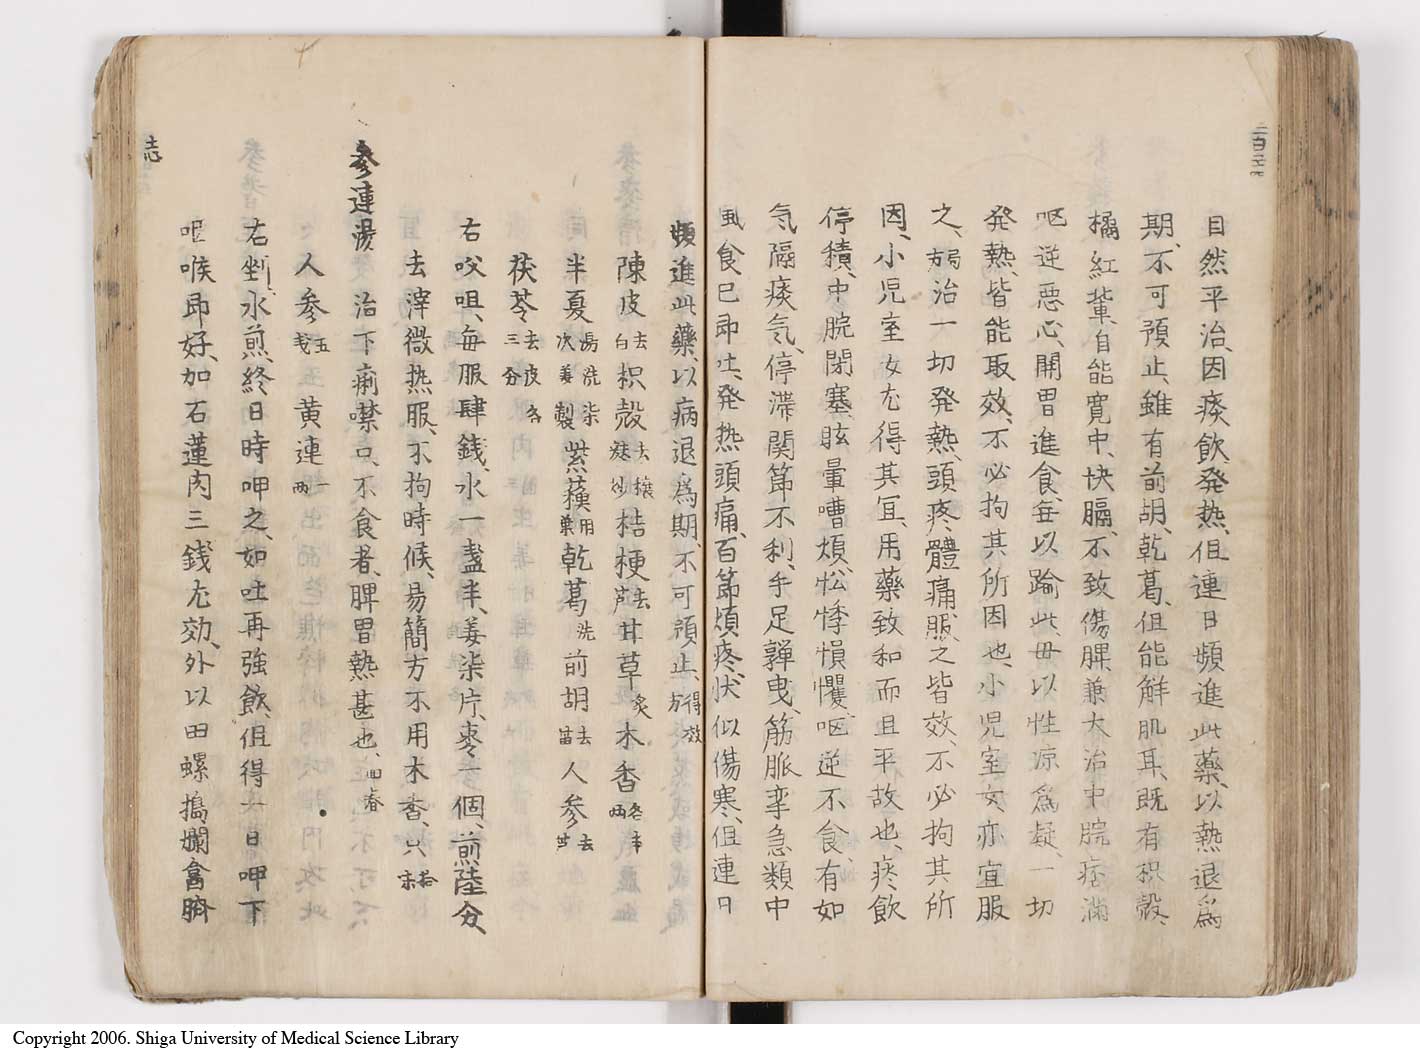 自然平治、因痰飲発热、但連日頻進此藥、以熱退爲
期、不可預止、雖有前胡、乾葛、但能解肌耳、既有枳殻、
橘紅輩、自能寛中、快膈、不致傷脾、兼大治中脘痞滿
嘔逆悪心、開胃進食、毎以踰此、毋以性凉爲疑、一切
発熱、皆能取效、不必拘其所因也、小児室女、亦宜服
之、弱治一切発熱、頭疼體痛、服之皆效、不必拘其所
因、小児室女尤得其宜、用藥致和而且平故也、痰飲
停積、中脘閉塞、眩暈嘈煩、忪悸愪懼、嘔逆不食、有如
気隔痰気、停滞関節不利、手足嚲曳、筋脈挛急、類中
風食已即吐、発热頭痛、百節煩疼、状似傷寒、但連日
頻進此藥、以病退爲期、不可預止、方得效
陳皮 去白 枳殻 去穣麸炒 桔梗 去芦 甘草 炙 木香 各半両
半夏 湯洗柒次姜製 紫蘓 用葉 乾葛 洗 前胡 去苗 人参 去芦
茯苓 去皮各三分
右㕮咀、毎服肆錢、水一盞半、姜柒片、棗一個、煎陸分
去滓微热服、不拘時候、易簡方不用木香、只拾味
参連湯 治下痢噤口、不食者、脾胃熱甚也、回春
人参 五戔 黄連 一両
右剉、水煎、終日時呷之、如吐再強飲、但得一日呷下
咽喉即好、加石蓮肉三錢尤効、外以田螺搗爛、盦臍
志